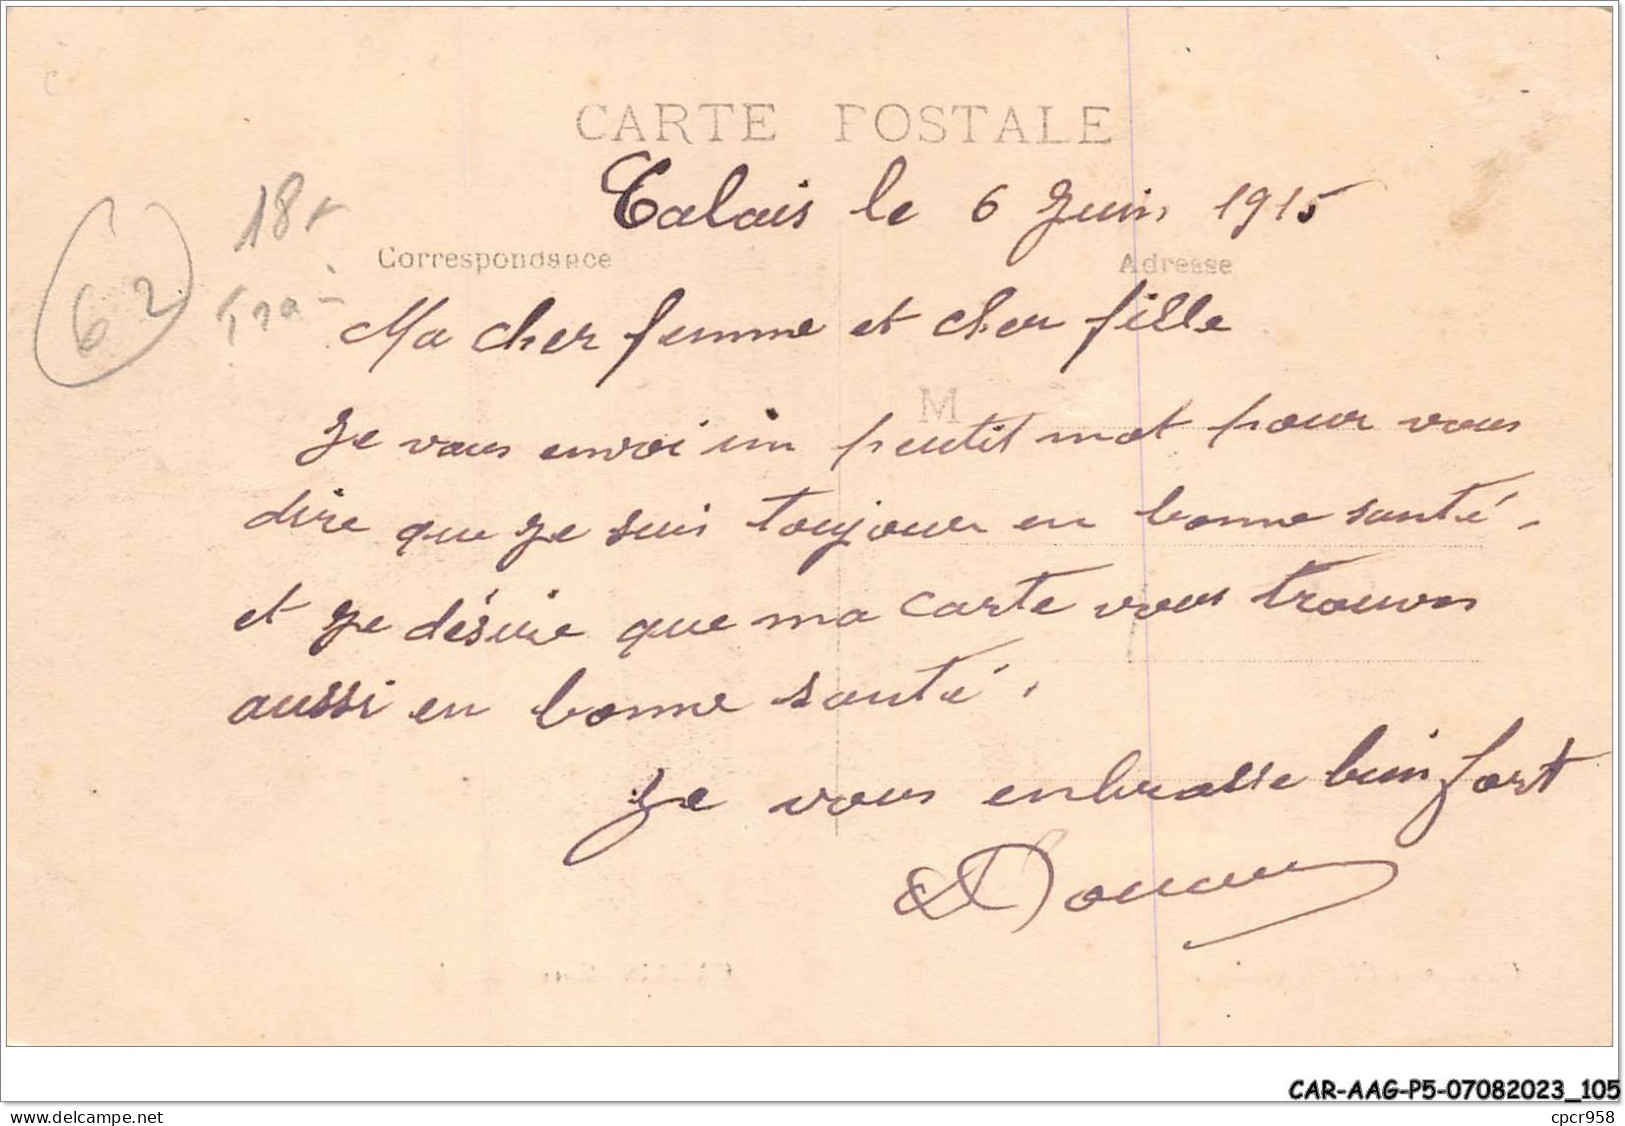 CARTE POSTALE
Calais le 6 Juin 1915
18r
Correspondance
Adresse
62
Ma cher femme et cher fille
M
Je vous envoi un peutit mot pour vous
dire que je suis toujour en bonne santé.
et je désire que ma carte vous trouves
aussi en bonne santé.
Je vous enbrasse bien fort
CAR-AAG-P5-07082023_105
www.delcampe.net
cpcr958